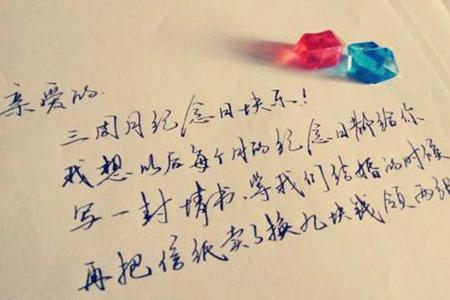 亲爱的
三周月纪念日快乐!
我想以后每个月的纪念日都给你
写一封情书,等我们结婚的时候
再把信纸卖了换九块钱领两张